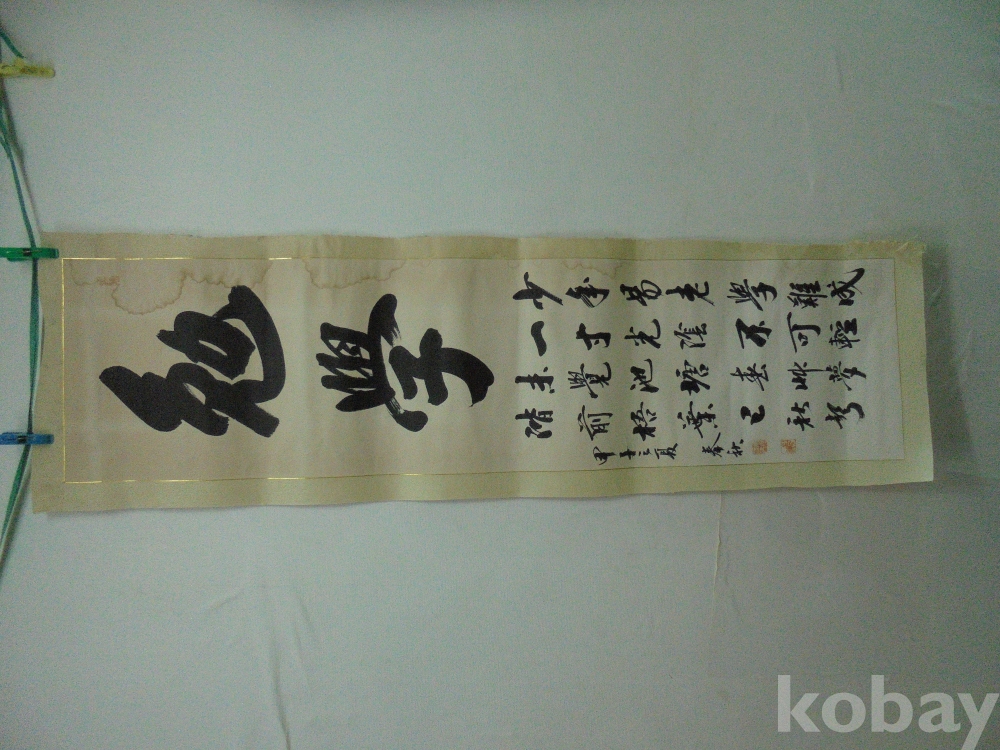 勉學
少年易老學難成
一寸光陰不可輕
未覺池塘春艸夢
階前梧葉已秋聲
甲子之夏
春秋
kobay